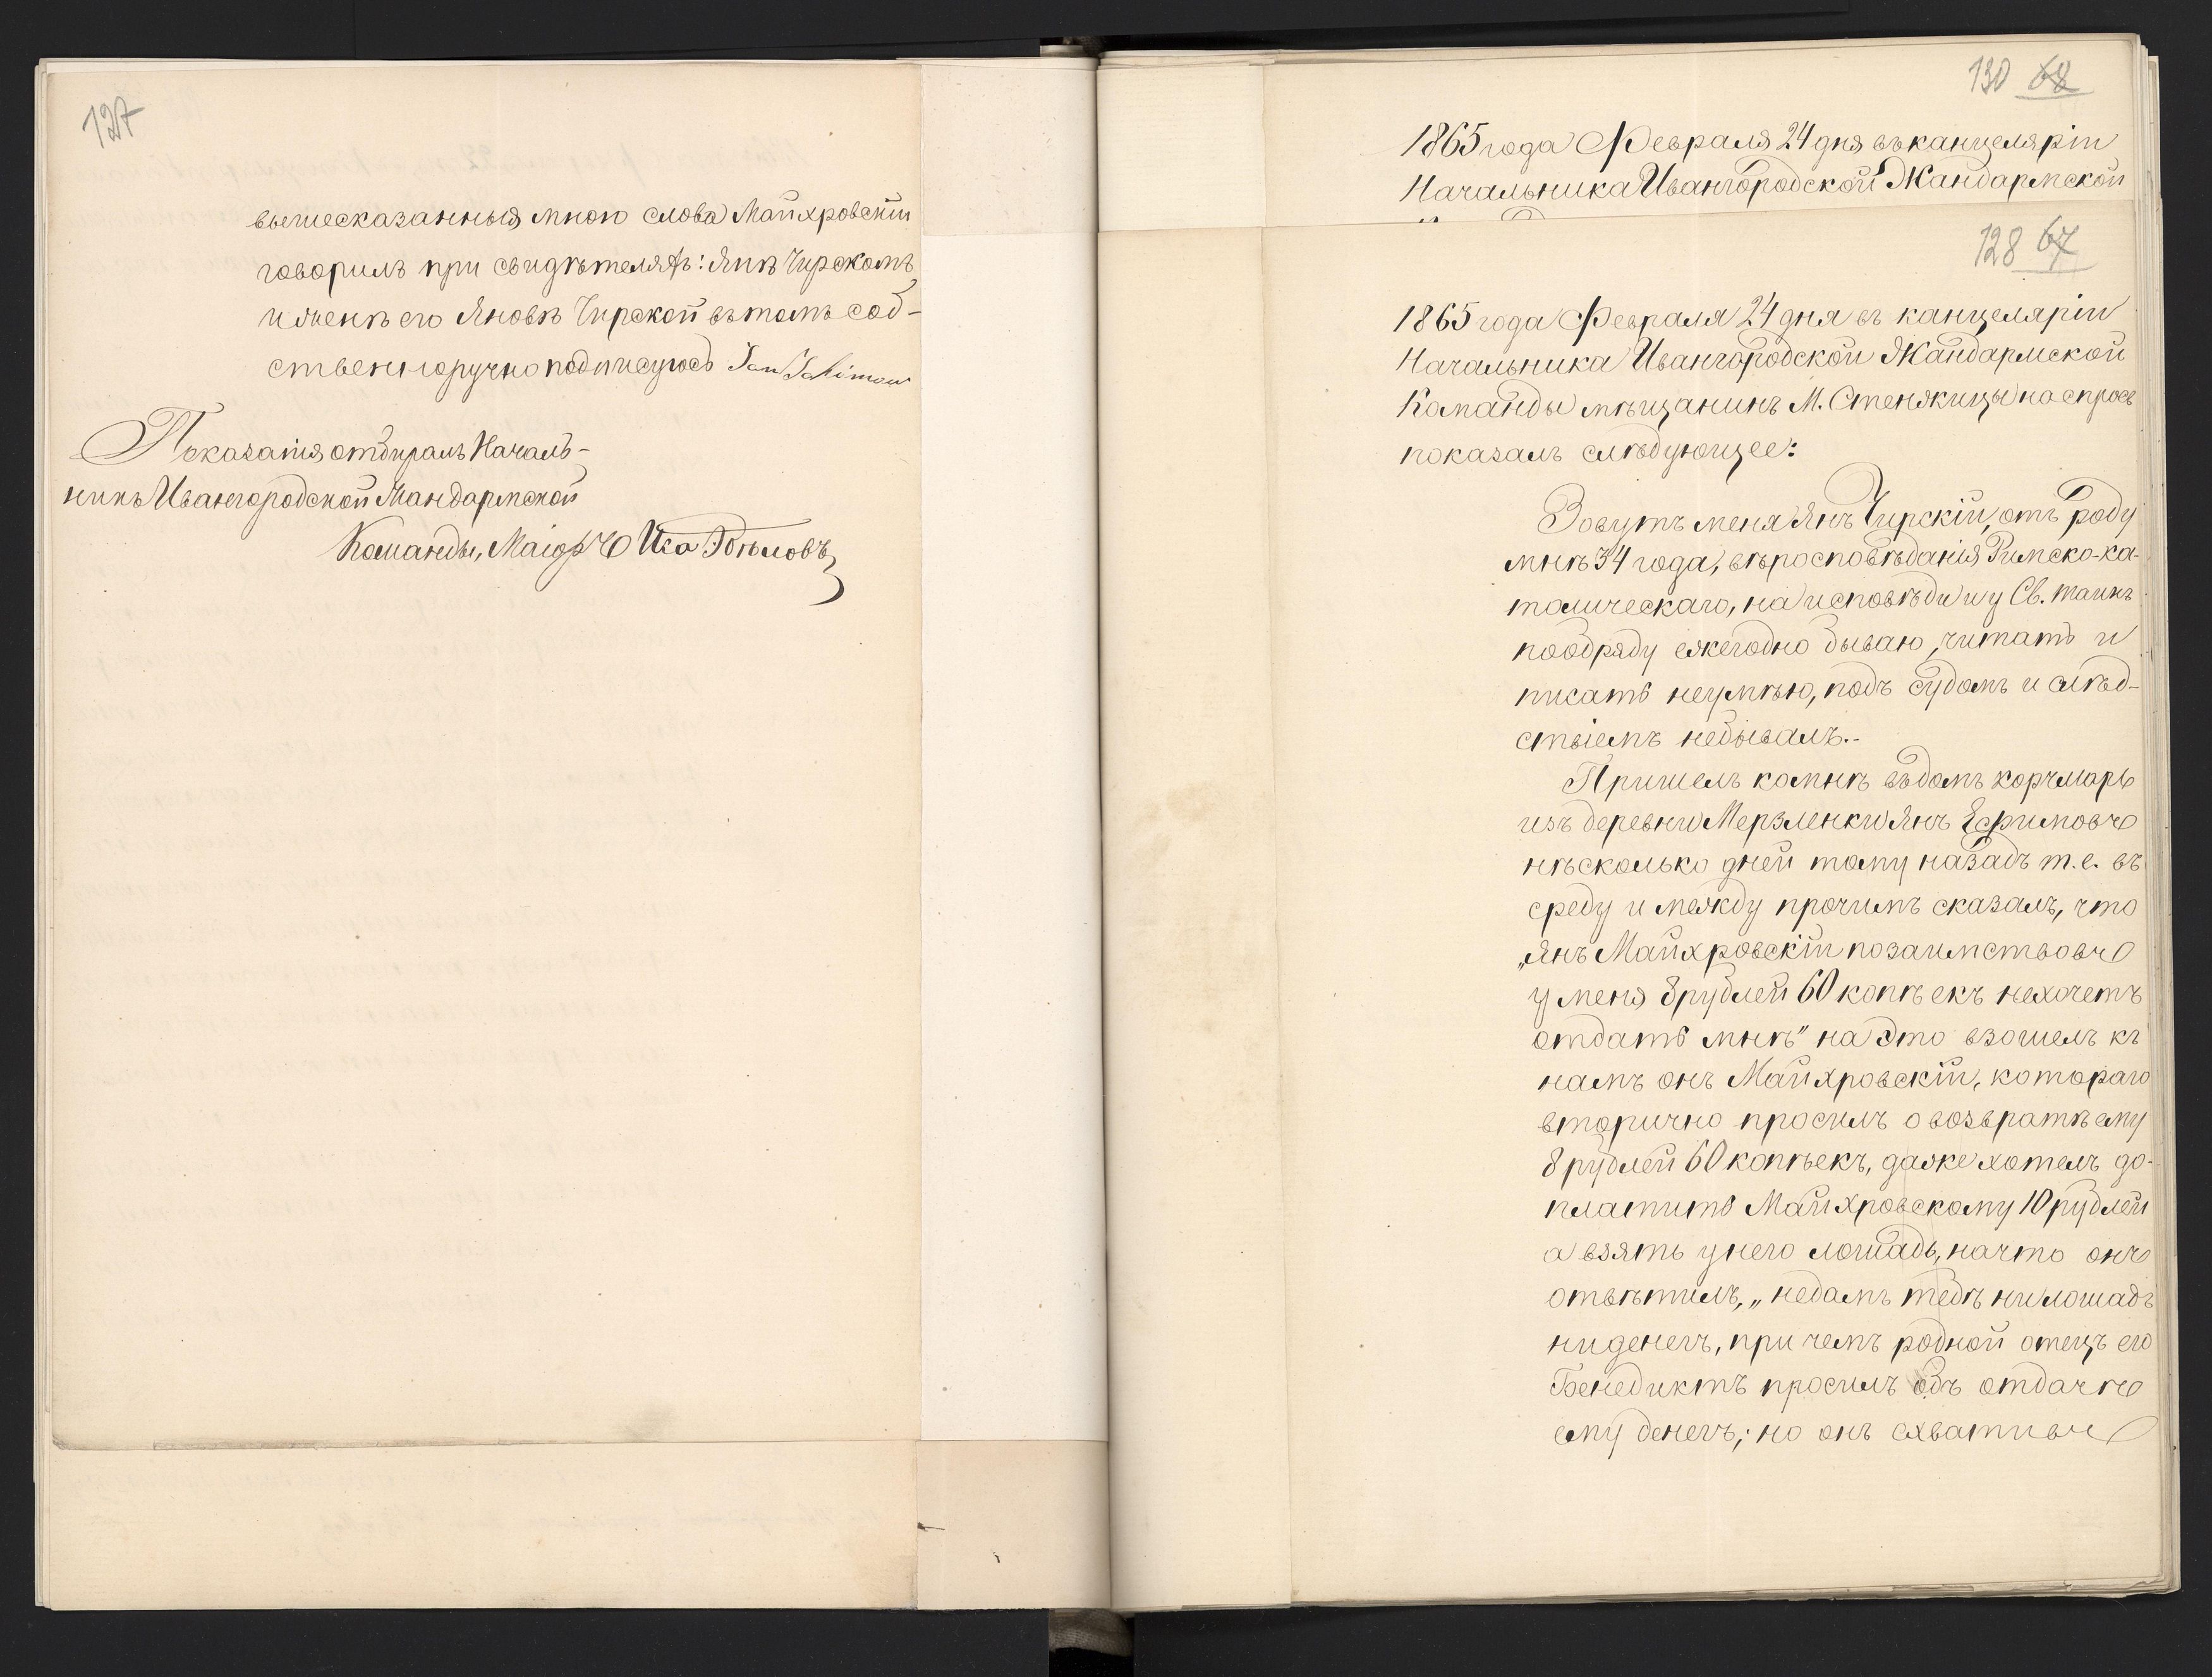 127
вышесказанныя мною слова Майхровскій
говорилъ при свидѣтеляхъ: Янѣ Чирскомъ
и женѣ его Яновѣ Чирской въ томъ соб-
ственноручно подписуюсь Jan
Показанія отбиралъ Началь-
никъ Ивангородской Жандармской
Команды, Маіоръ
130 68
1865 года Февраля 24 дня въ канцеляріи
Начальника Ивангородской Жандармской
128 67
1865 года Февраля 24 дня въ канцеляріи
Начальника Ивангородской Жандармской
Команды мѣщанинъ М. Стенжицы на спросъ
показалъ слѣдующее:
Зовутъ меня Янъ Чирскій, отъ роду
мнѣ 34 года, вѣроисповѣданія Римско-ка-
толическаго, на исповѣди и у Св. таинъ
пообряду ежегодно бываю, читать и
писать неумѣю, подъ судомъ и слѣд-
ствіемъ небывалъ.-
Пришелъ комнѣ въ домъ корчмарь
изъ деревни Мерзленки Янъ Ефимовъ
нѣсколько дней тому назадъ т.е. въ
среду и между прочимъ сказалъ, что
„Янъ Майхровскій позаимствовъ
у меня 8 рублей 60 копѣекъ нехочетъ
отдать мнѣ" на это взошелъ къ
намъ онъ Майхровскій, котораго
вторично просилъ о возвратѣ ему
8 рублей 60 копѣекъ, даже хотелъ до-
платить Майхровскому 10 рублей
а взять у него лошадь, на что онъ
отвѣтилъ, „недамъ тебѣ ни лошадь
ни денегъ, при чемъ родной отецъ его
Бенедиктъ просилъ объ отдачѣ
ему денегъ; но онъ схвативъ